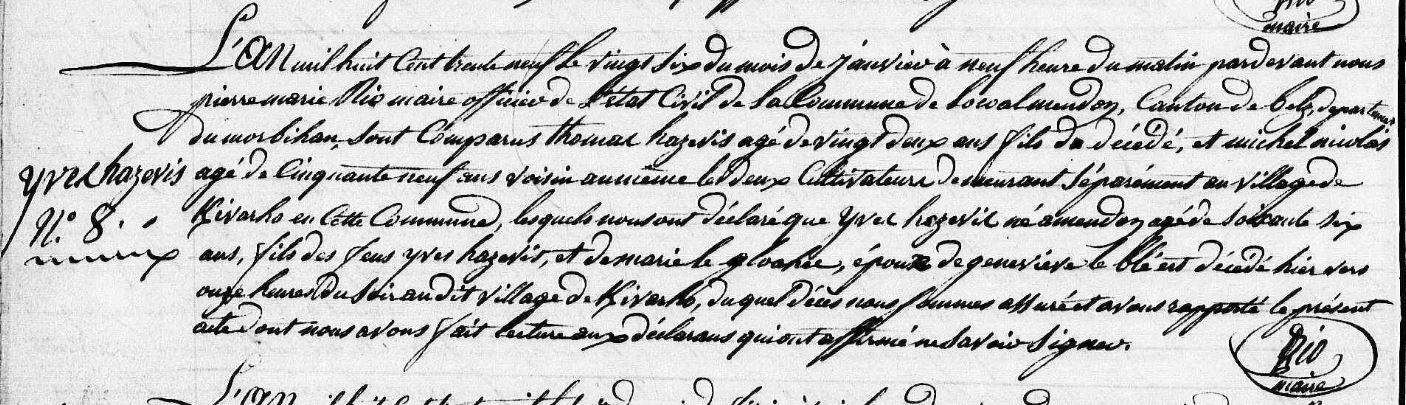 Rio
maire
L'an mil huit Cent trente neuf le vingt six du mois de janvier à neuf heure du matin pardevant nous
pierre marie Rio maire officier de L'état Civil de la Commune de Locoalmendon, Canton de belz, departement
du morbihan, sont Comparus thomas hazevis agé de vingt deux ans fils du décédé, et michel nicolas
yves hazevis
agé de Cinquante neuf ans voisin au même les deux Cultivateurs demeurant séparément au village de
N.o 8.
Kivarho en Cette Commune, lesquels nous ont déclaré que yves hazevis né a mendon agé de soixante six
ans, fils des feus yves hazevis, et de marie le gloahec, époux de geneviève le blé est décédé hier vers
onze heures du soir au dit village de Kivarho, du quel décès nous sommes assuré et avons rapporté le présent
acte dont nous avons fait lecture aux déclarans qui ont affirmé ne savoir signer.
Rio
maire
L'an